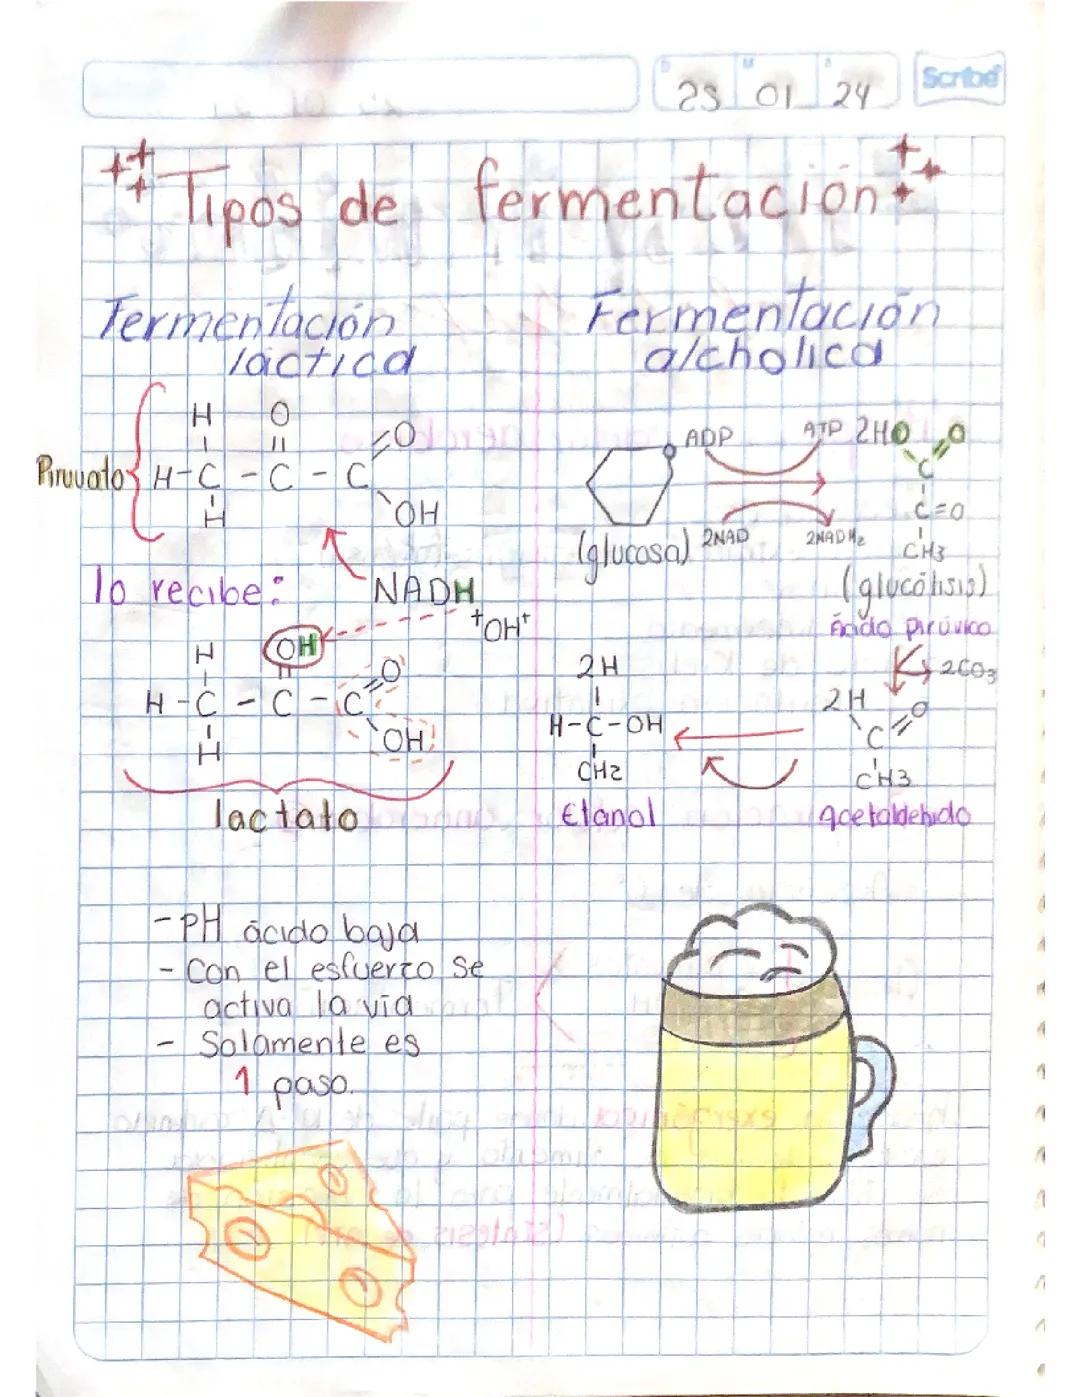 Scribe
D M A
23 01 24
Tipos de fermentación
Fermentación
láctica
Piruvato
H O
O
H-C-C-C
H
OH
lo recibe:
NADH
+OH+
H
OH
O
H-C-C-C
H
OH
lactato
-PH ácido baja
-Con el esfuerzo se
activa la vía
- Solamente es
1 paso.
Fermentación
alcholica
ADP
ATP
2HO
O
C
C=O
CH3
(glucosa)
2NAD
2NADH2
(glucólisis)
Ácido pirúvico
2CO3
2H
O
C
CH3
Acetaldehido
2H
H-C-OH
CH2
Etanol